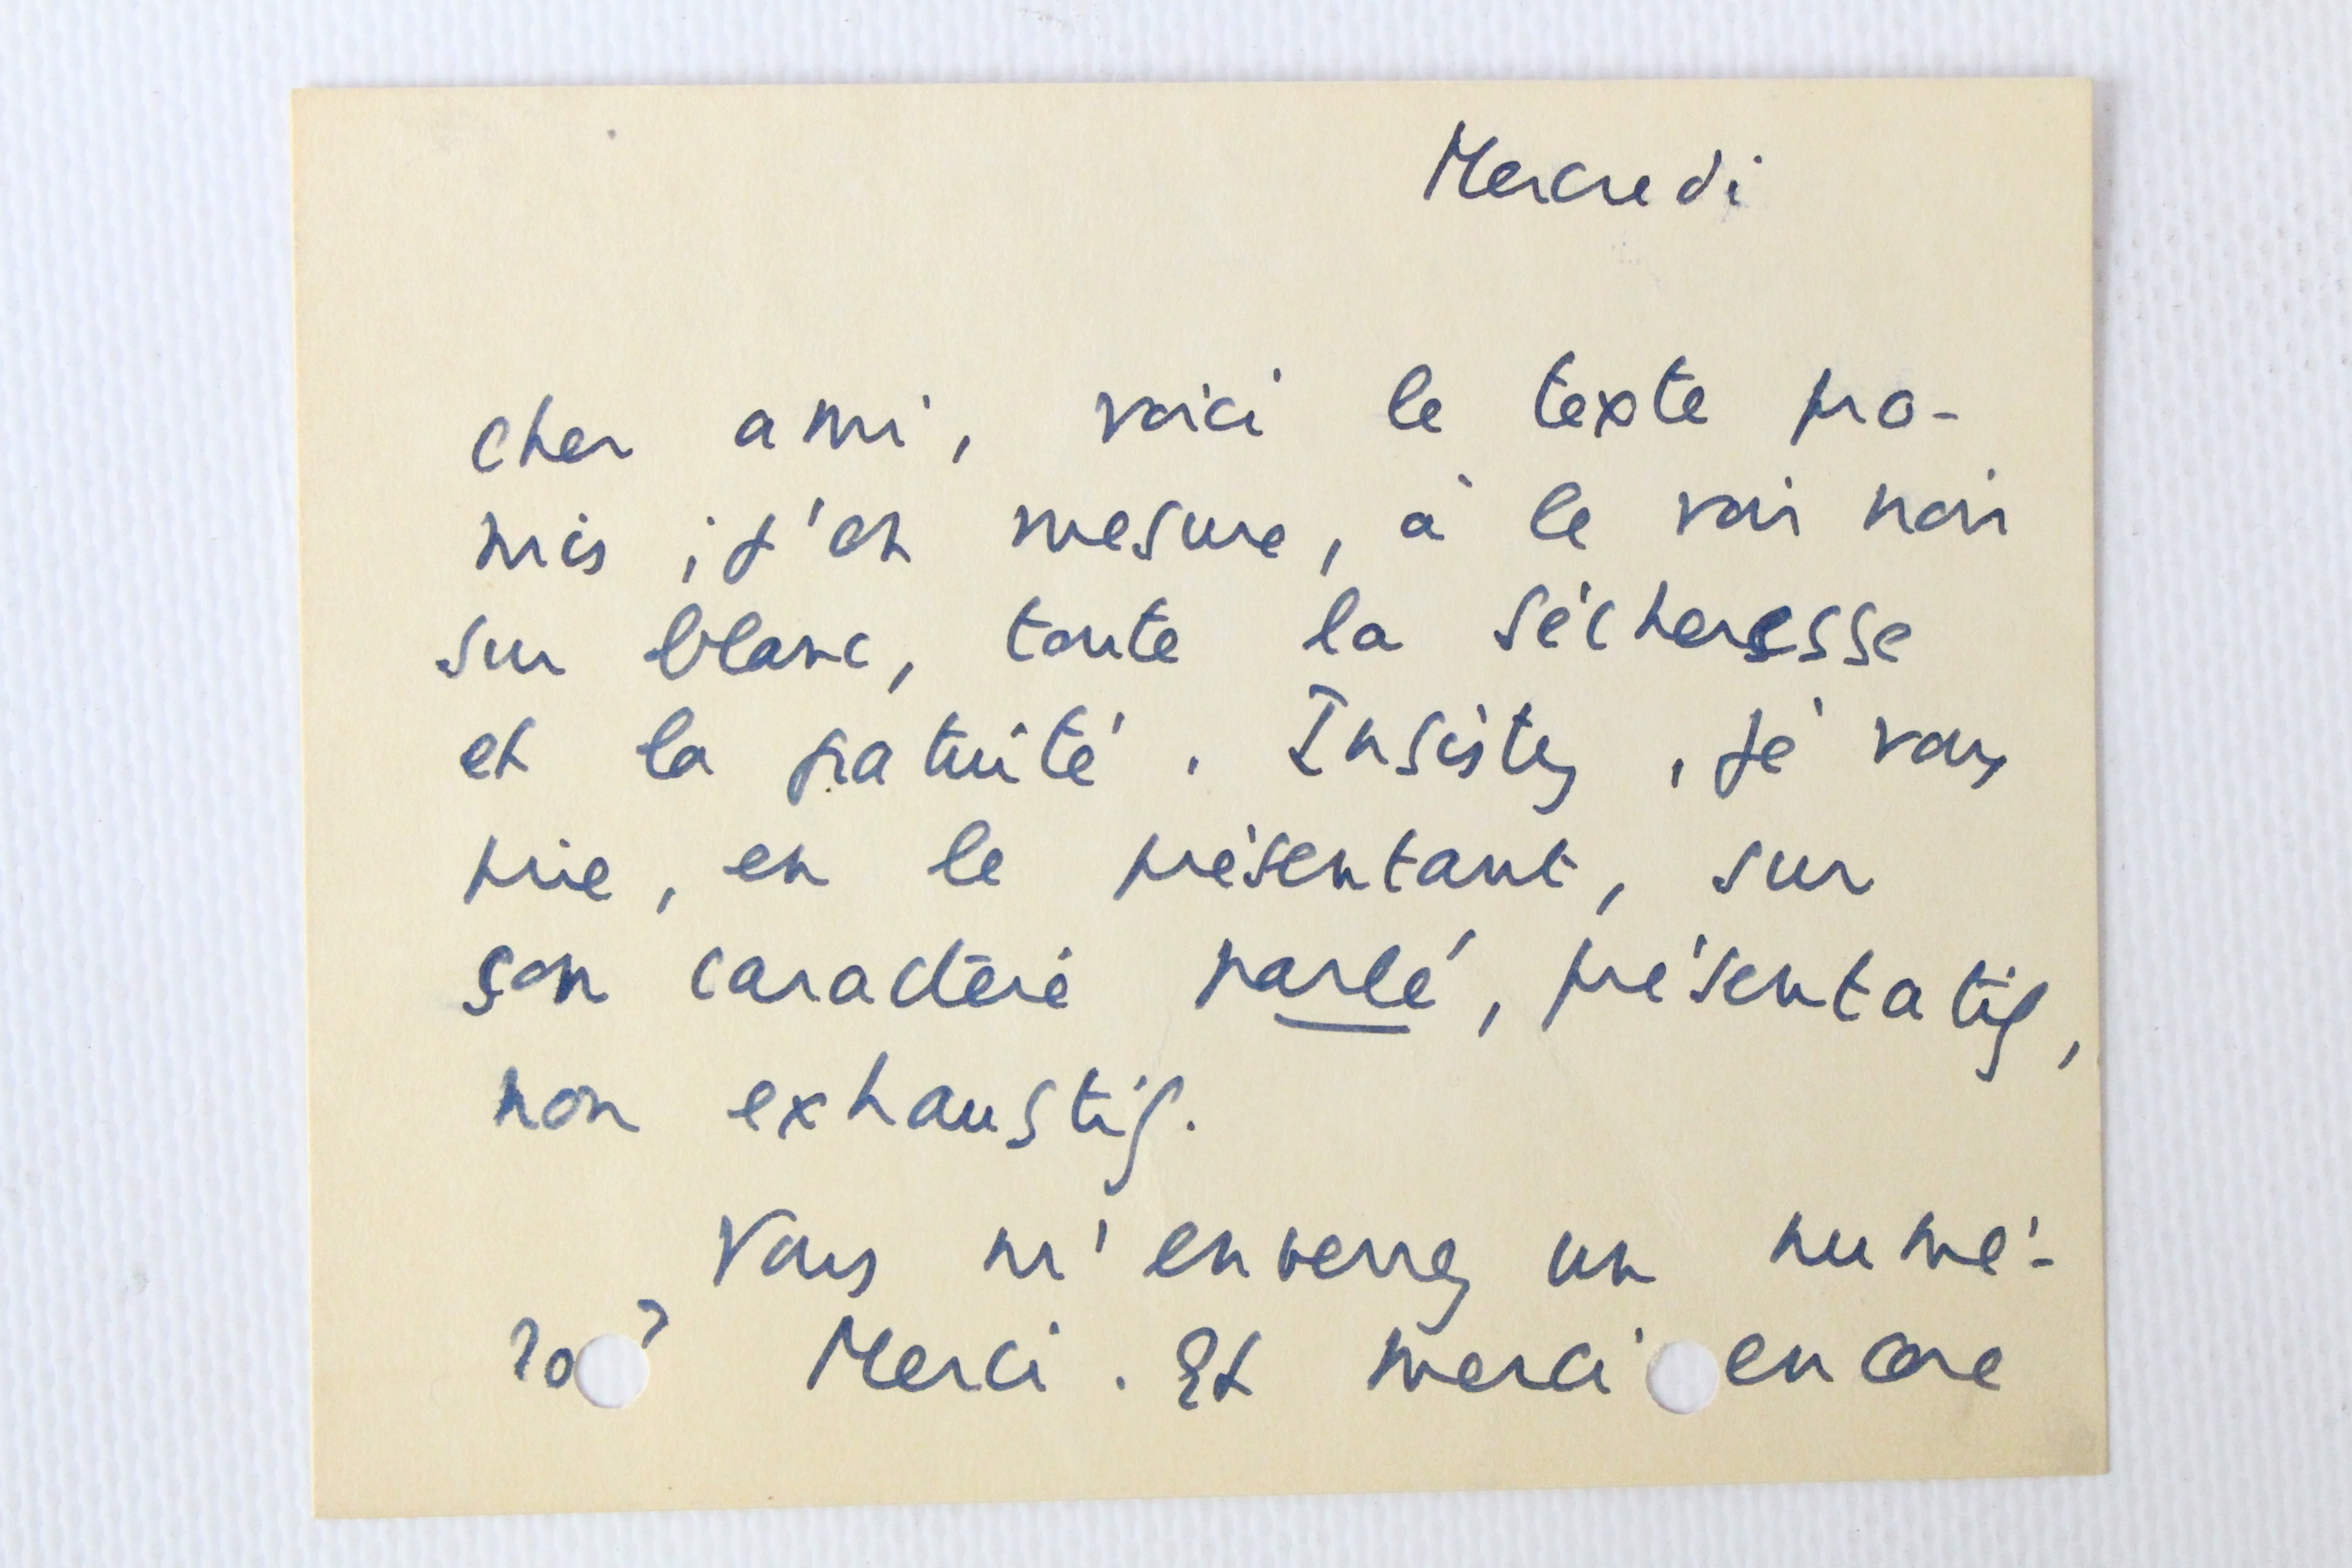 Mercredi
Cher ami, voici le texte pro-
mis ; j'en mesure, à le voir noir
sur blanc, toute la sécheresse
et la gratuité. Insistez, je vous
prie, en le présentant, sur
son caractère parlé, présentatif,
non exhaustif.
Vous m'enverrez un numé-
ro ? Merci. Et merci encore